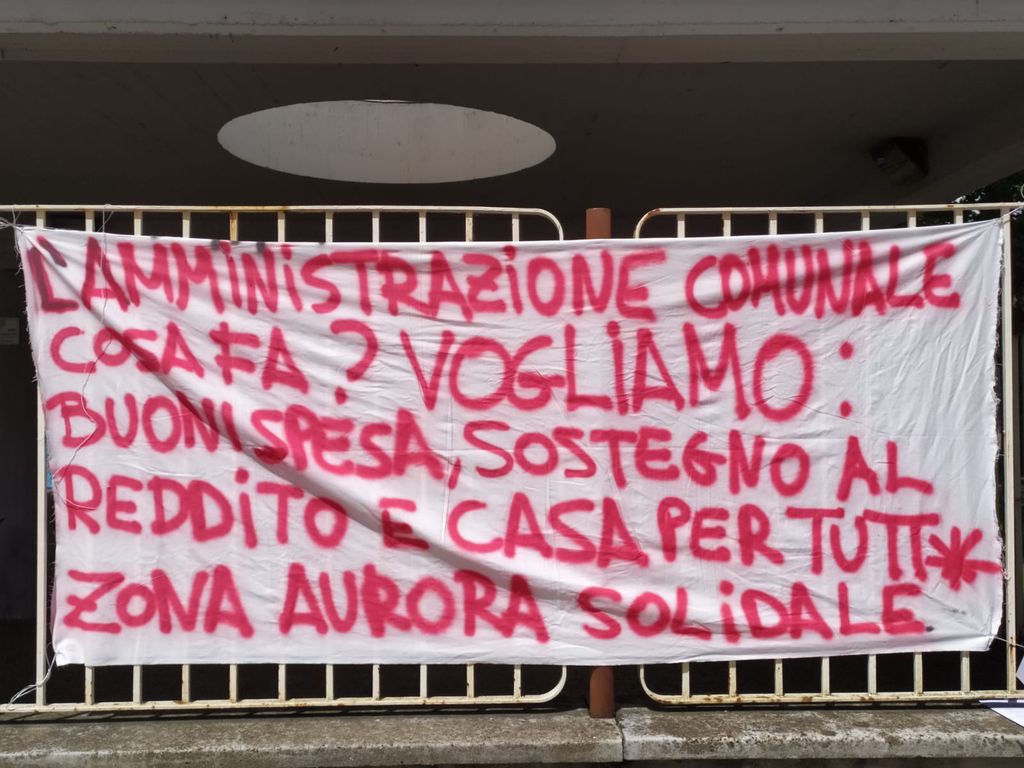 L'AMMINISTRAZIONE COMUNALE
COSA FA? VOGLIAMO:
BUONI SPESA, SOSTEGNO AL
REDDITO E CASA PER TUTT*
ZONA AURORA SOLIDALE